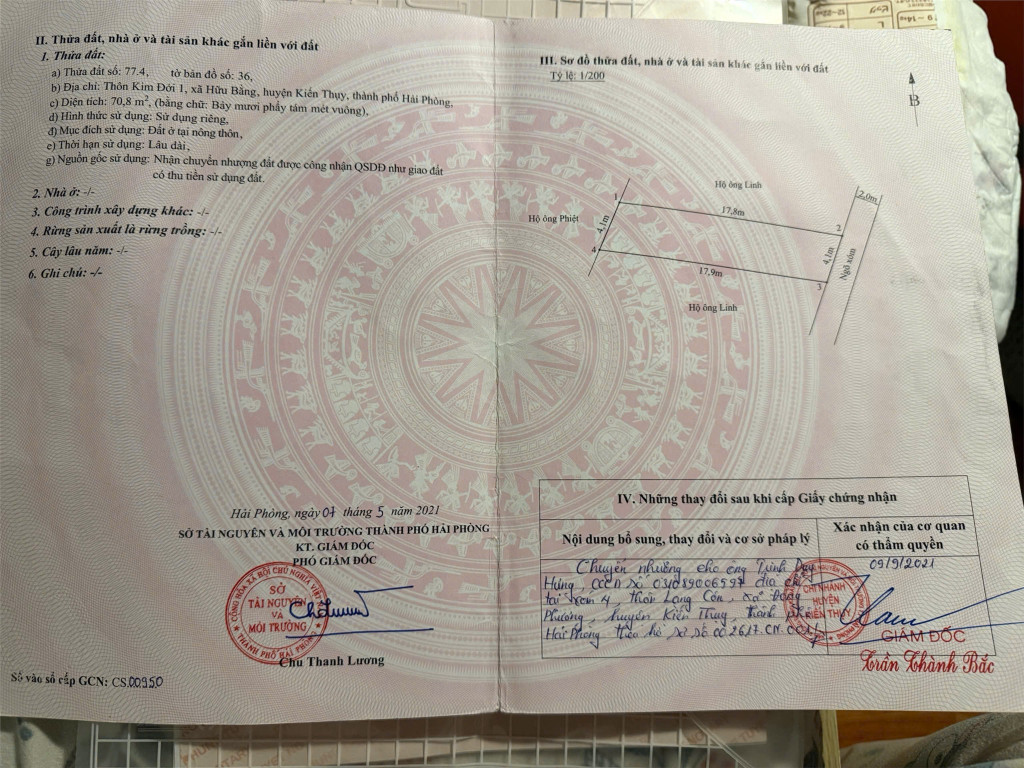 II. Thửa đất, nhà ở và tài sản khác gắn liền với đất
1. Thửa đất:
a) Thửa đất số: 77.4, tờ bản đồ số: 36,
b) Địa chỉ: Thôn Kim Đới 1, xã Hữu Bằng, huyện Kiến Thụy, thành phố Hải Phòng,
c) Diện tích: 70,8 m², (bằng chữ: Bảy mươi phẩy tám mét vuông),
d) Hình thức sử dụng: Sử dụng riêng,
đ) Mục đích sử dụng: Đất ở tại nông thôn,
e) Thời hạn sử dụng: Lâu dài,
g) Nguồn gốc sử dụng: Nhận chuyển nhượng đất được công nhận QSDĐ như giao đất
có thu tiền sử dụng đất.
2. Nhà ở: -/-
3. Công trình xây dựng khác: -/-
4. Rừng sản xuất là rừng trồng: -/-
5. Cây lâu năm: -/-
6. Ghi chú: -/-
Hải Phòng, ngày 07 tháng 5 năm 2021
SỞ TÀI NGUYÊN VÀ MÔI TRƯỜNG THÀNH PHỐ HẢI PHÒNG
KT. GIÁM ĐỐC
PHÓ GIÁM ĐỐC
CỘNG HÒA XÃ HỘI CHỦ NGHĨA VIỆT
SỞ
TÀI NGUYÊN
VÀ
MÔI TRƯỜNG
THÀNH PHỐ HẢI PHÒNG
Chu Thanh Lương
Số vào sổ cấp GCN: CS.00950
III. Sơ đồ thửa đất, nhà ở và tài sản khác gắn liền với đất
Tỷ lệ: 1/200
B
Hộ ông Linh
2,0m
1
17,8m
Hộ ông Phiệt
4,1m
2
4
4,1m
Ngõ xóm
17,9m
3
Hộ ông Linh
IV. Những thay đổi sau khi cấp Giấy chứng nhận
Nội dung bổ sung, thay đổi và cơ sở pháp lý
Xác nhận của cơ quan
có thẩm quyền
Chuyển nhượng cho ông Trịnh Duy
Hưng, CCCD số địa chỉ
tại xóm 4, thôn Lạng Côn, xã Đông
Phương, huyện Kiến Thụy, thành phố
Hải Phòng theo hồ sơ số
09/9/2021
CHI NHÁNH
HUYỆN
KIẾN THỤY
GIÁM ĐỐC
Trần Thành Bắc